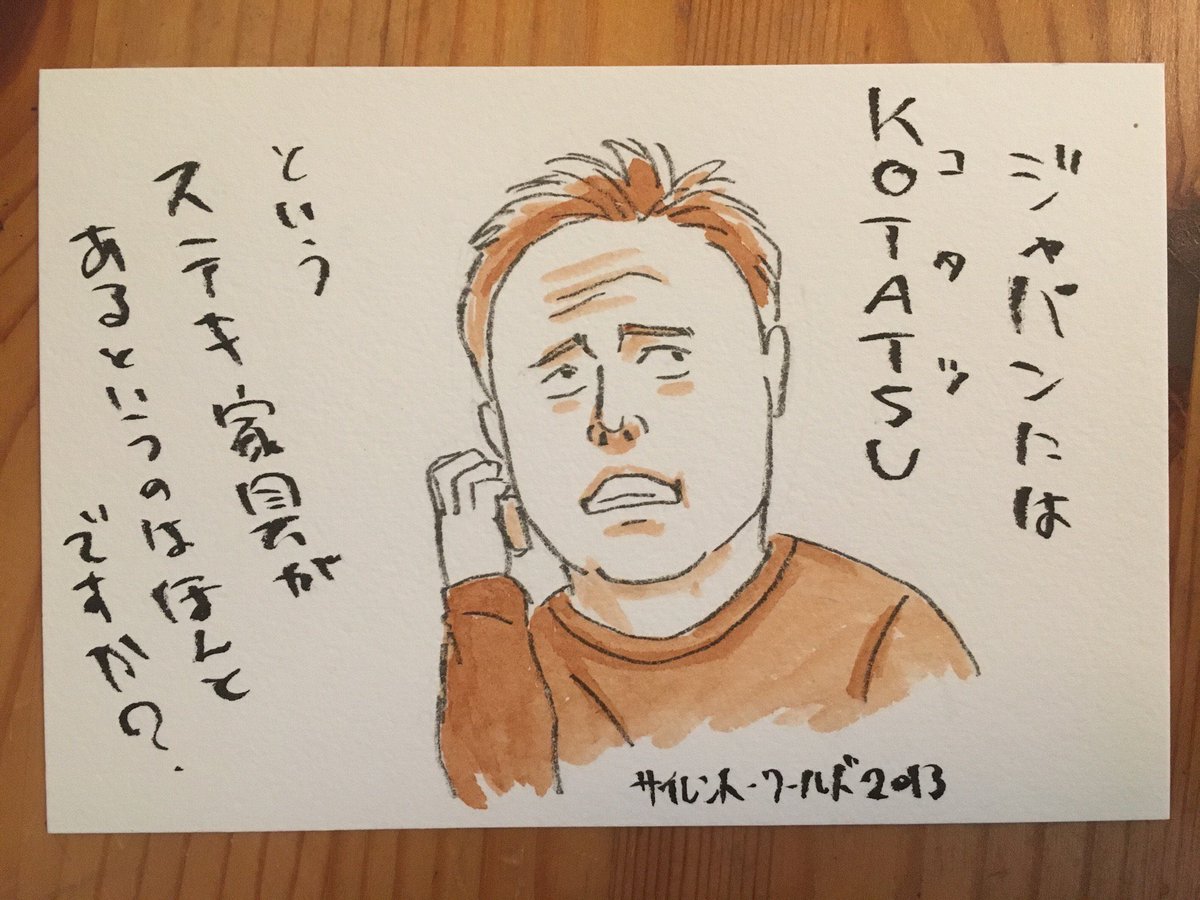 ジャパンには
コタツ
KOTATSU
という
ステキ家具が
あるというのはほんと
ですか?
サイレント・ワールド2013